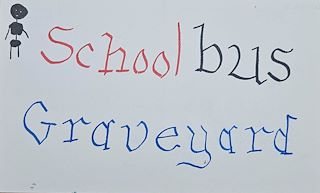 School bus
Graveyard